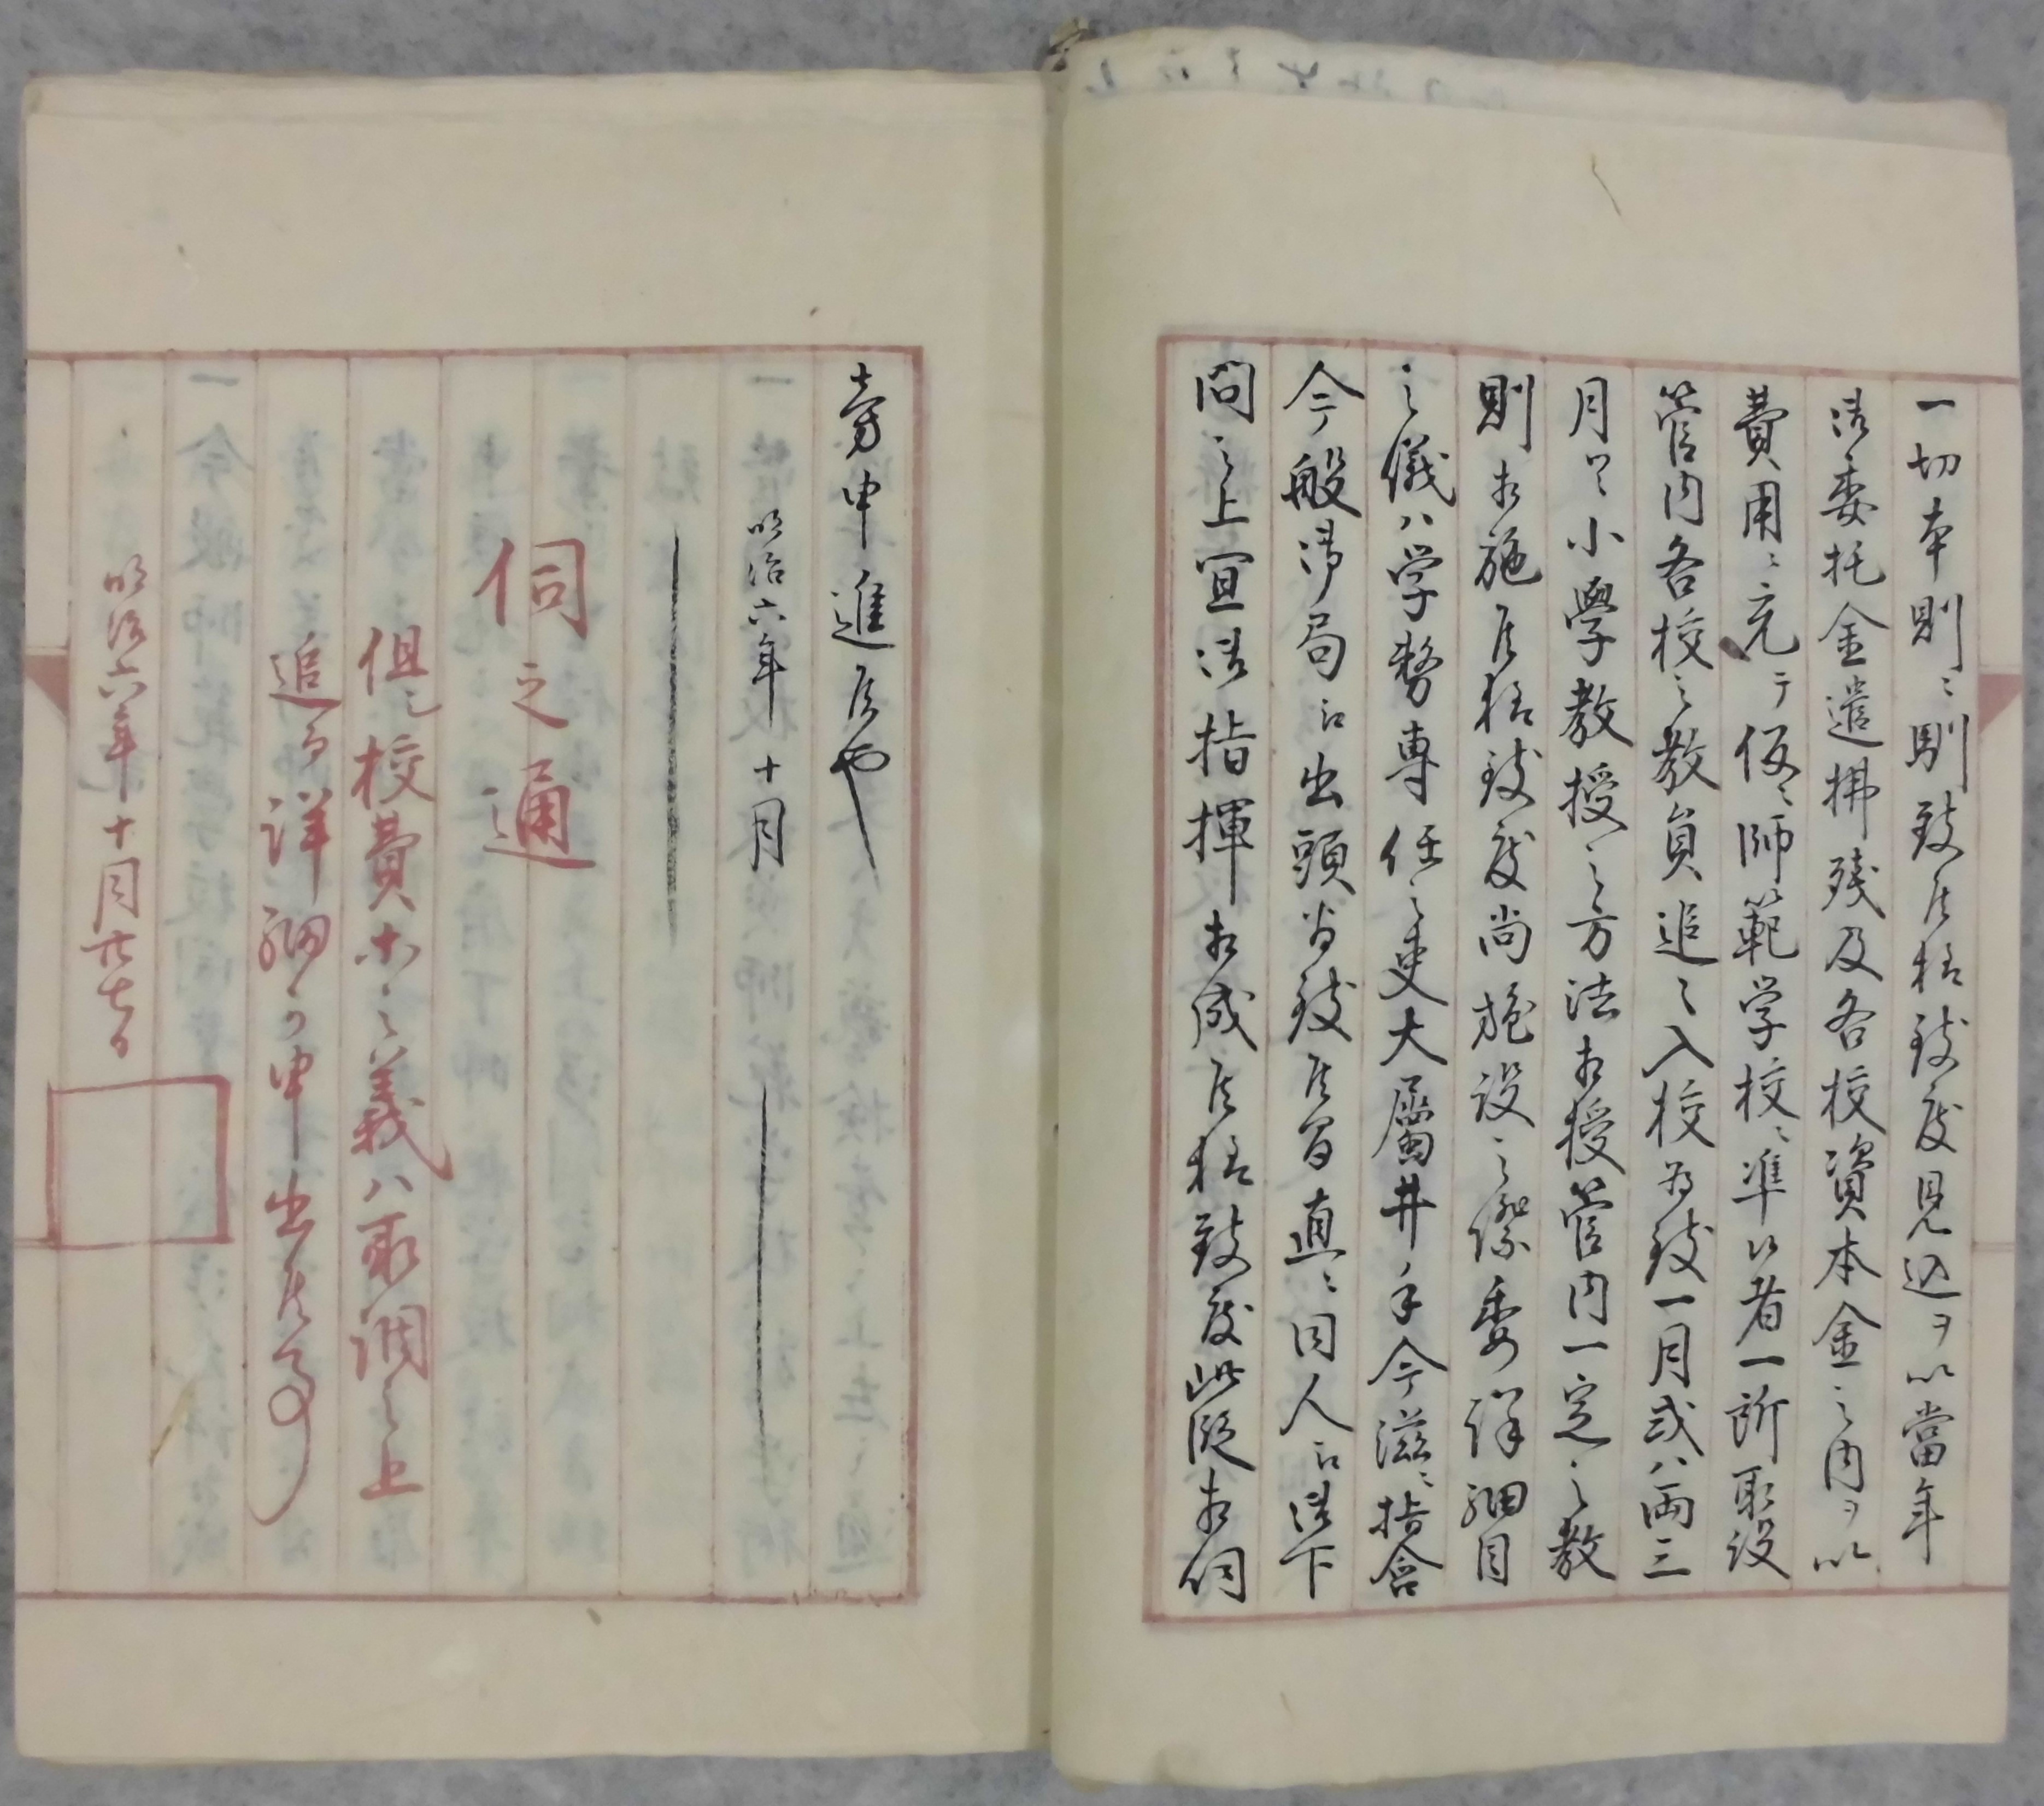 一切本則ニ馴致候様致度見込ヲ以當年
御委托金遣拂残及各校資本金之内ヲ以
費用ニ充テ仮ニ師範学校ニ準候者一所取設
管内各校之教員追々入校為致一月或ハ両三
月ニ小學教授之方法相授管内一定之教
則相施候様致度尚施設之際委詳細目
之儀ハ学務専任之吏大属井手今滋ニ指含
今般御局江出頭為致候間直ニ同人江御下
問之上宜御指揮相成候様致度此段相伺
旁申進候也
明治六年十月
伺之通
但シ校費等之義ハ取調之上
追而詳細可申出候事
明治六年十月廿七日